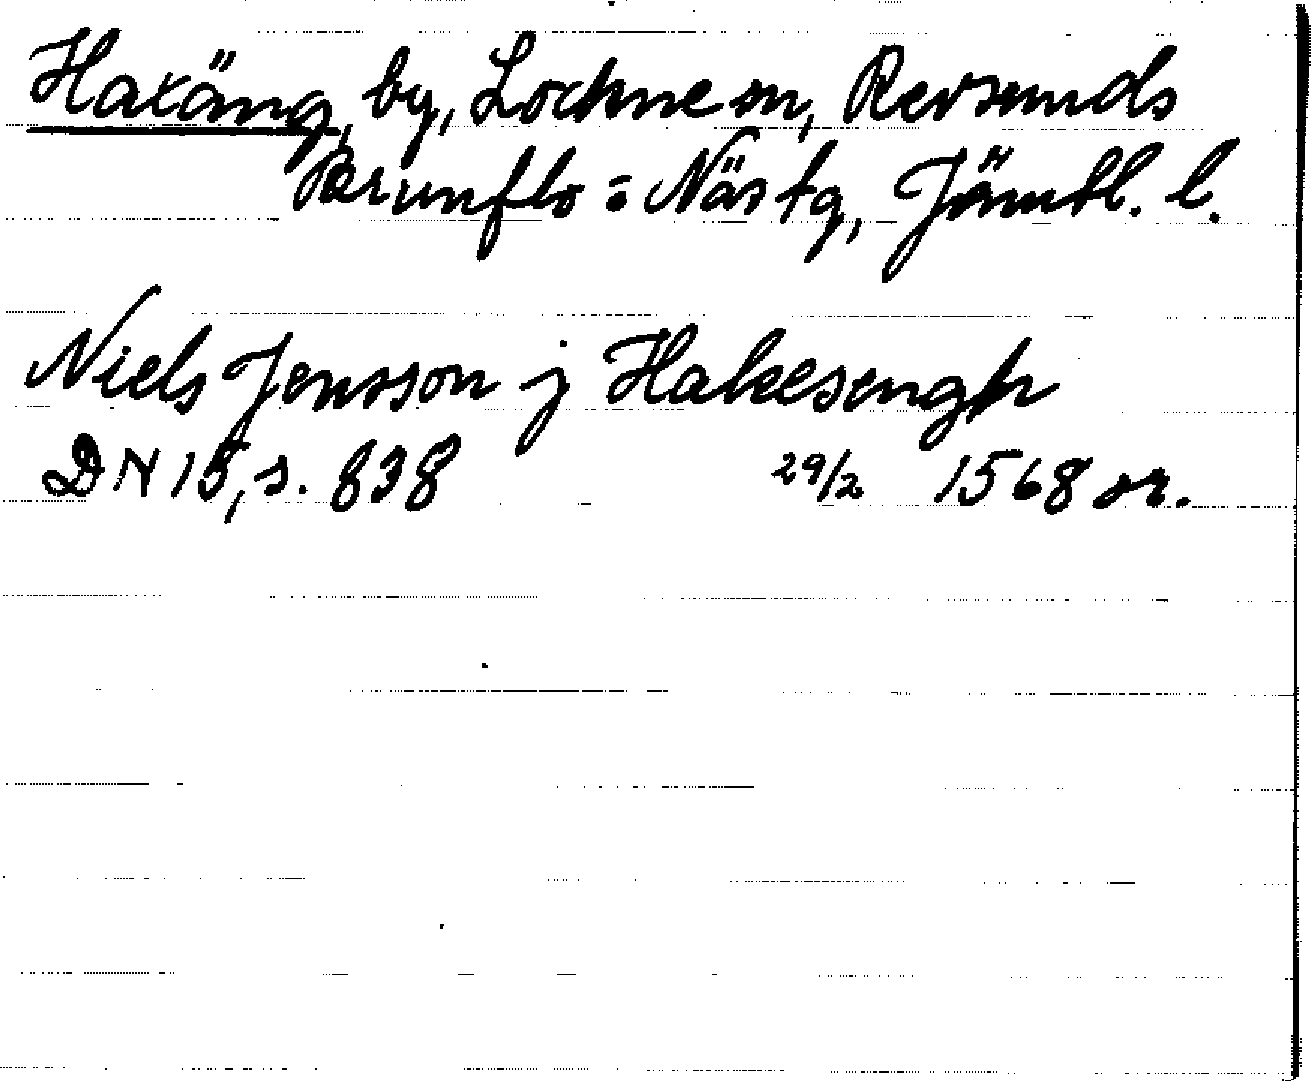 Haxäng, by, Lockne sn, Revsunds
Brunflo o Näs tg, Jämtl. l.
Niels Jensson j Hakesengh
DN 15, s. 838 29/2 1568 or.